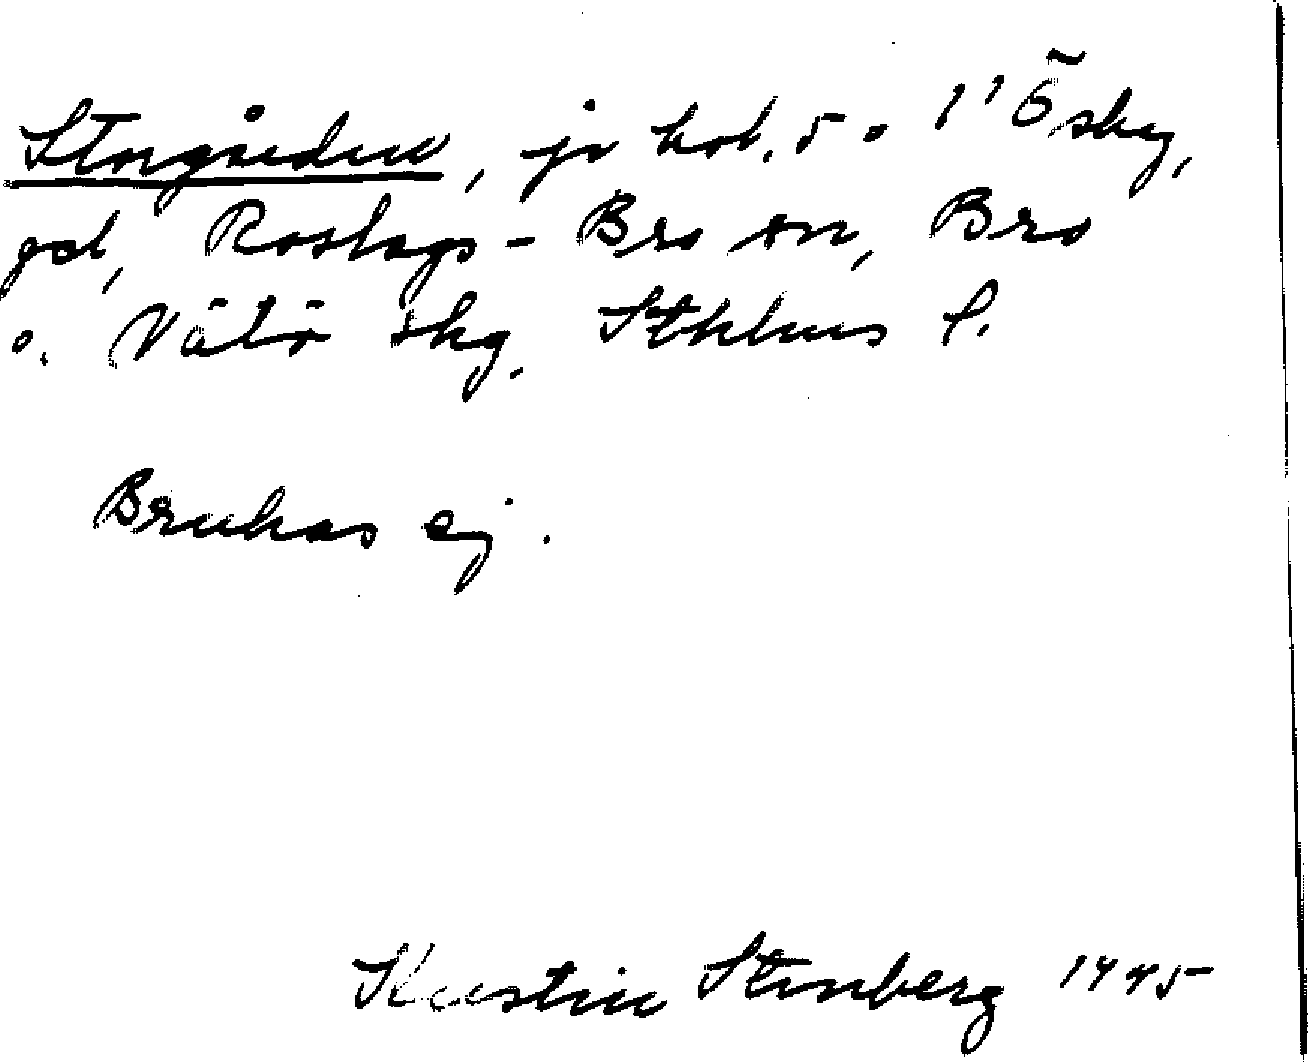 Storgården, på kol. 5 o. 1' Ösby,
gd, Roslags-Bro sn, Bro
o. Vätö skg. Sthlms l.
Brukas ej.
Kerstin Stenberg 1945